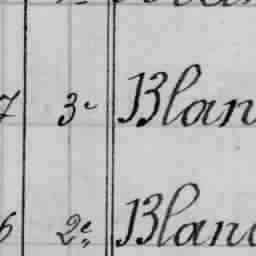 7 3e Blan
6 2e, Blanc